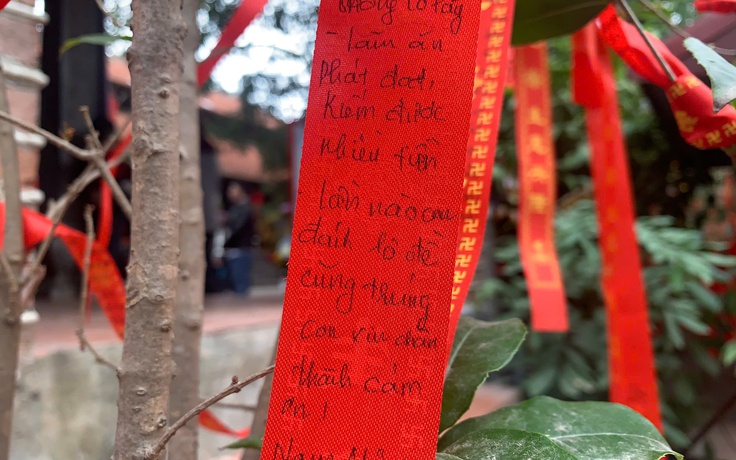 không lô tẩy
- làm ăn
phát đạt,
kiếm được
nhiều tiền
lần nào con
đánh lô đề
cũng trúng
con xin chân
thành cảm
ơn!
Nam Mô